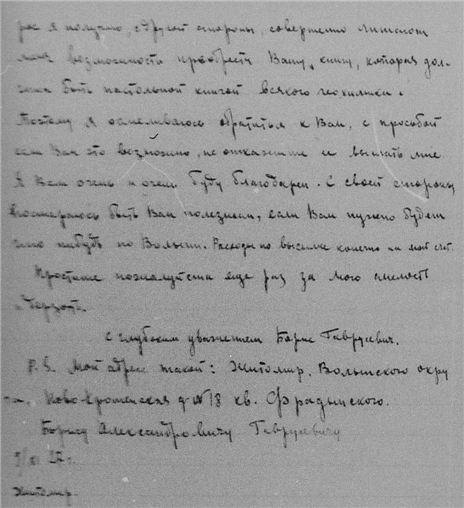 рос я получаю, с другой стороны, совершенно лишают
меня возможности приобрести Вашу книгу, которая дол-
жна быть настольной книгой всякого геохимика.
Поэтому я осмеливаюсь обратиться к Вам, с просьбой
если Вам это возможно, не откажите ее выслать мне
Я Вам очень и очень буду благодарен. С своей стороны
постараюсь быть Вам полезным, если Вам нужно будет
что нибудь по Волыни. Расходы по высылке конечно на мой счет.
Простите пожалуйста еще раз за мою смелость
и дерзость.
С глубоким уважением Борис Гаврусевич.
P.S. Мой адрес такой: Житомир. Волынского окру
га, Ново-Кроменская д № 18 кв. Фрадынского.
Борису Александровичу Гаврусевичу
XI 27 г.
Житомир.